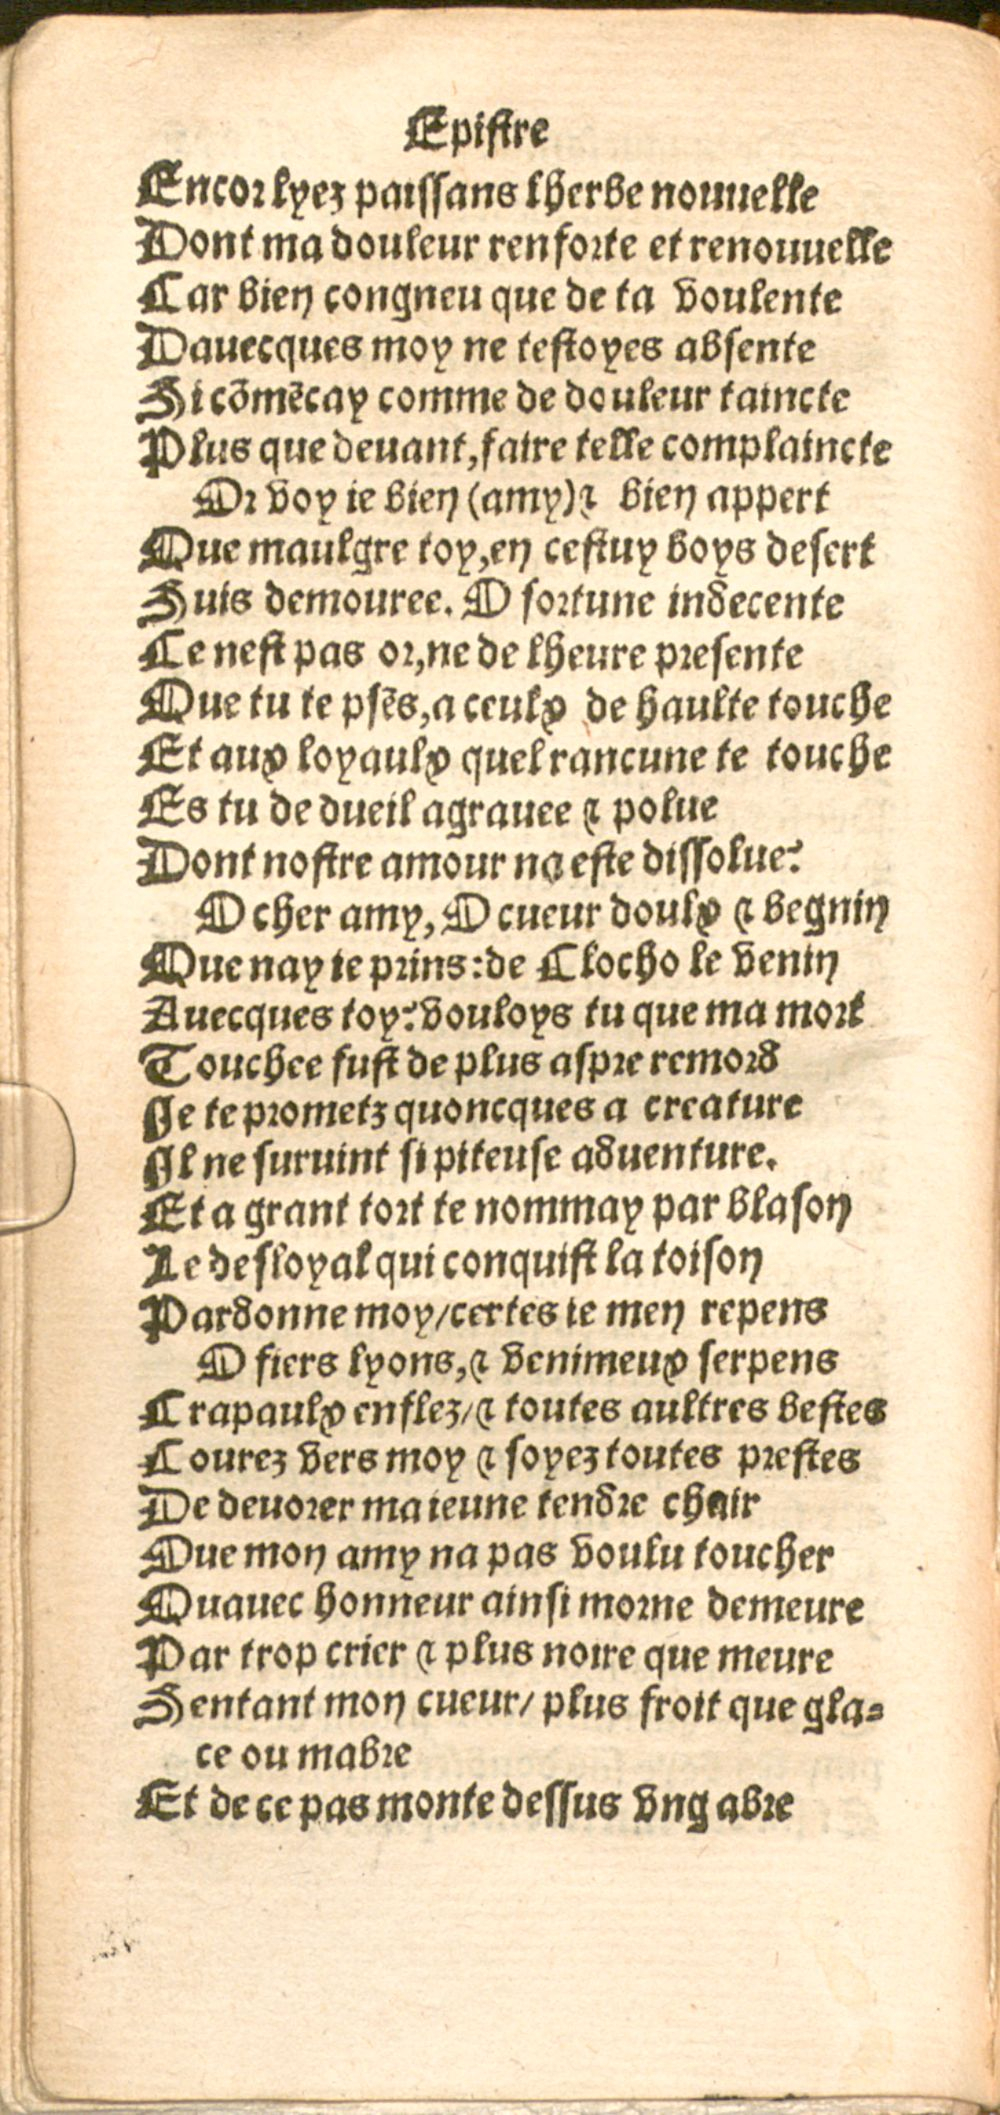 Epistre
Encor lyez paissans lherbe nouuelle
Dont ma douleur renforte et renouuelle
Car bien congneu que de ta voulente
Dauecques moy ne testoyes absente
Si cõmẽcay comme de douleur taincte
Plus que deuant, faire telle complaincte
Or voy ie bien (amy) ⁊ bien appert
Que maulgre toy, en cestuy boys desert
Suis demouree. O fortune indecente
Ce nest pas or, ne de lheure presente
Que tu te psẽs, a ceulx de haulte touche
Et aux loyaulx quel rancune te touche
Es tu de dueil agrauee ⁊ polue
Dont nostre amour na este dissolue?
O cher amy, O cueur doulx ⁊ begnin
Que nay ie prins: de Clocho le venin
Auecques toy? vouloys tu que ma mort
Touchee fust de plus aspre remord
Je te prometz quoncques a creature
Il ne suruint si piteuse aduenture.
Et a grant tort te nommay par blason
Le desloyal qui conquist la toison
Pardonne moy/certes ie men repens
O fiers lyons, ⁊ venimeux serpens
Crapaulx enflez/ ⁊ toutes aultres bestes
Courez vers moy ⁊ soyez toutes prestes
De deuorer ma ieune tendre chair
Que mon amy na pas voulu toucher
Quauec honneur ainsi morne demeure
Par trop crier ⁊ plus noire que meure
Sentant mon cueur/ plus froit que gla=
ce ou mabre
Et de ce pas monte dessus vng abre